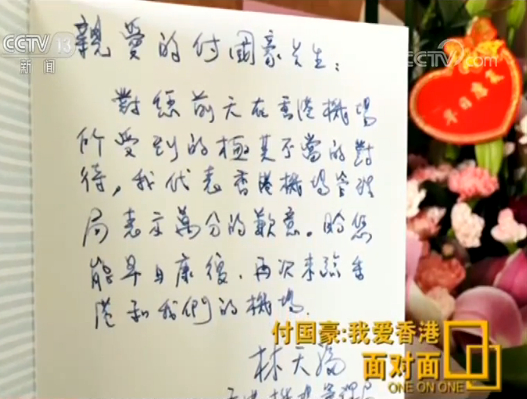 CCTV 13
新闻
CCTV.com
親愛的付國豪先生：
對您前天在香港機場
所受到的極其不當的對
待，我代表香港機場管理
局表示萬分的歉意。盼您
能早日康復，再次來臨香
港和我們的機場。
早日康復
林天福
付国豪:我爱香港
面对面
ONE ON ONE